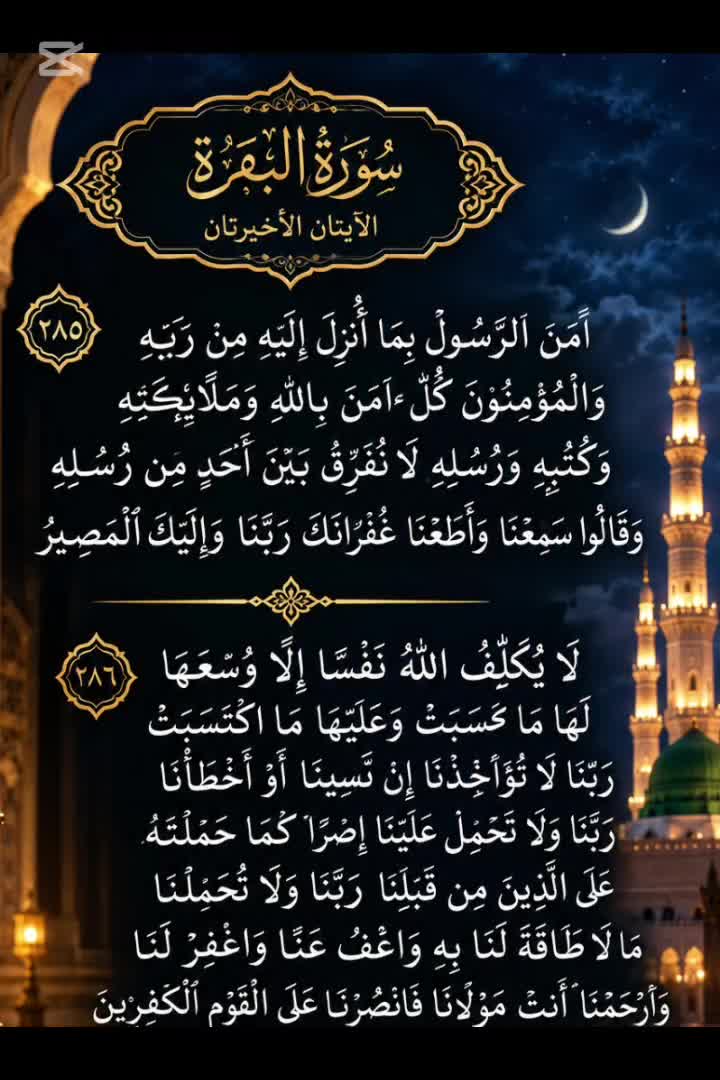 سُورَةُ البَقَرَة
الآيتان الأخيرتان
٢٨٥
اَمَنَ اَلرَّسُولْ بِمَا أُنْزِلَ إِلَيْهِ مِنْ رَبِّهِ
وَالْمُؤْمِنُوْنَ كُلّ ءَامَنَ بِاللهِ وَمَلَايِٕكَتِهِ
وَكُتُبِهِ وَرُسُلِهِ لَا نُفَرِّقُ بَيْنَ أَحَدٍ مِن رُسُلِهِ
وَقَالُوا سَمِعْنَا وَأَطَعْنَا غُفْرَانَكَ رَبَّنَا وَإِلَيْكَ ٱلْمَصِيرُ
٢٨٦
لَا يُكَلِّفُ اللهُ نَفْسًا إِلَّا وُسْعَهَا
لَهَا مَا كَسَبَتْ وَعَلَيْهَا مَا اكْتَسَبَتْ
رَبَّنَا لَا تُؤَأخِذْنَا إِنْ نَسِينَا أَوْ أَخْطَأْنَا
رَبَّنَا وَلَا تَحْمِلْ عَلَيْنَا إِصْرًا كَمَا حَمْلْتَهُ
عَلَى الَّذِينَ مِن قَبْلِنَا رَبَّنَا وَلَا تُحَمِلْنَا
مَا لَا طَاقَةَ لَنَا بِهِ وَاعْفُ عَنَّا وَاغْفِرْ لَنَا
وَأرْحَمْنَا أَنتْ مَوْلَانَا فَانْصُرْنَا عَلَى الْقَوْمِ ٱلْكَفِرِينَ